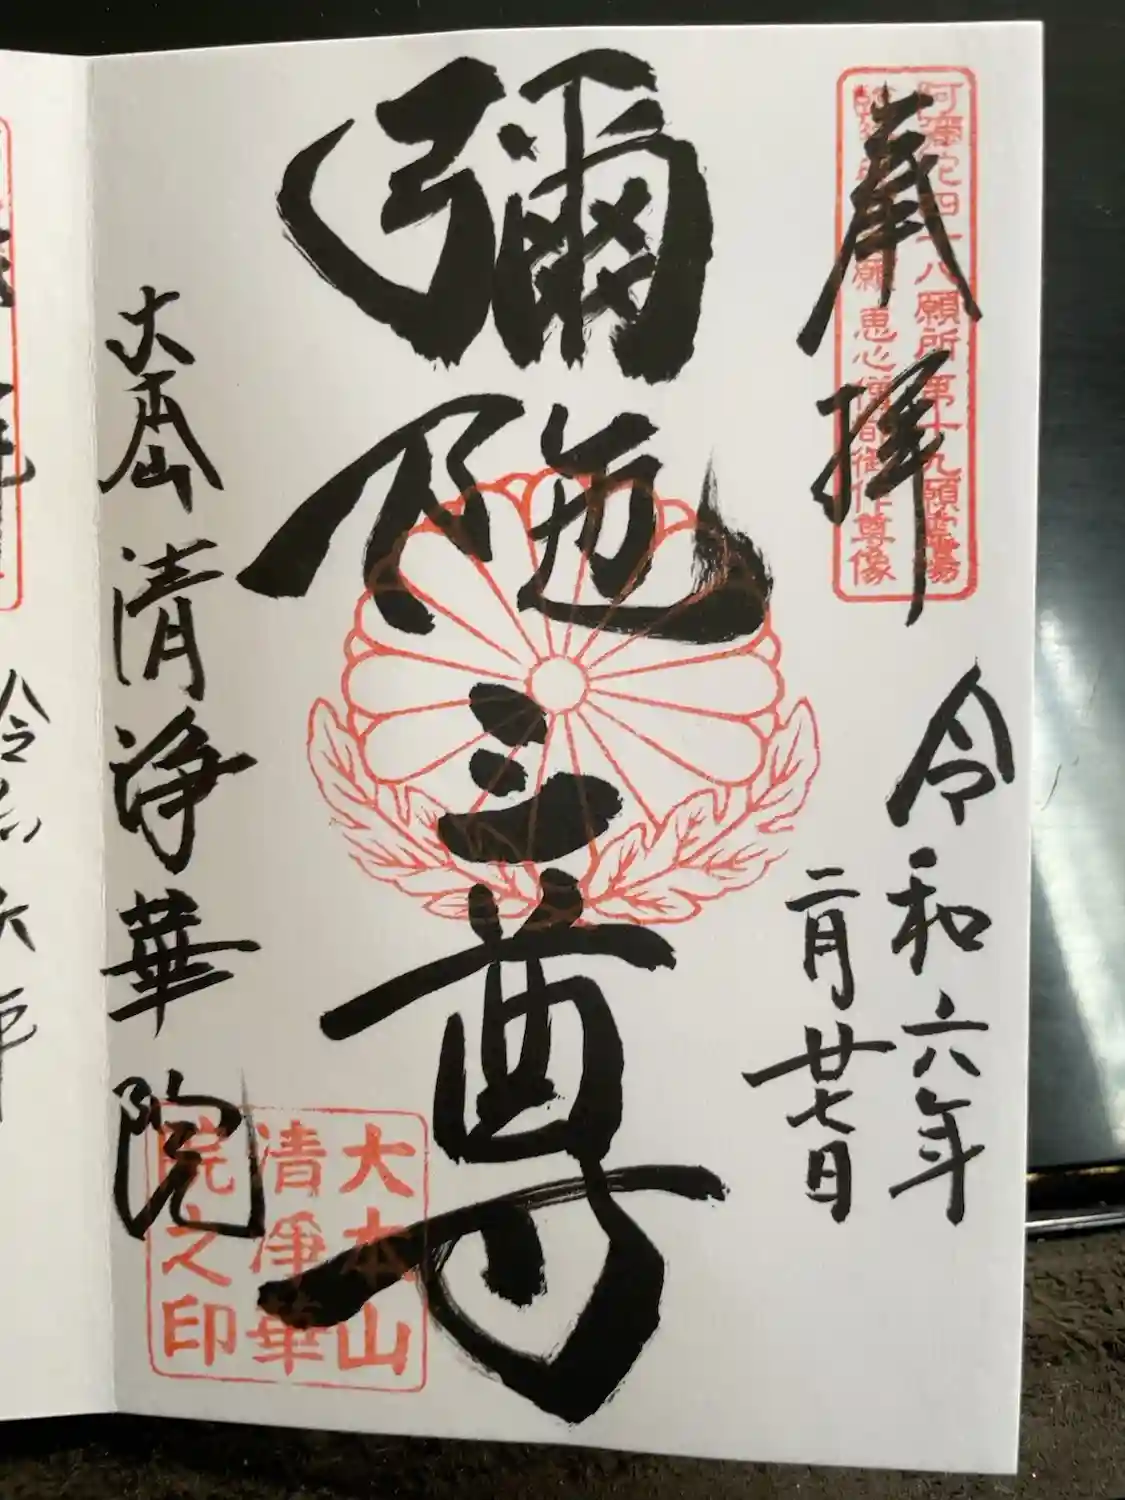 奉拝
阿彌陀四十八願所第十九願霊場
願 恵心僧都御作尊像
令和六年
二月廿七日
彌陀三尊
大本山 清浄華院
大本山
清淨華
院之印